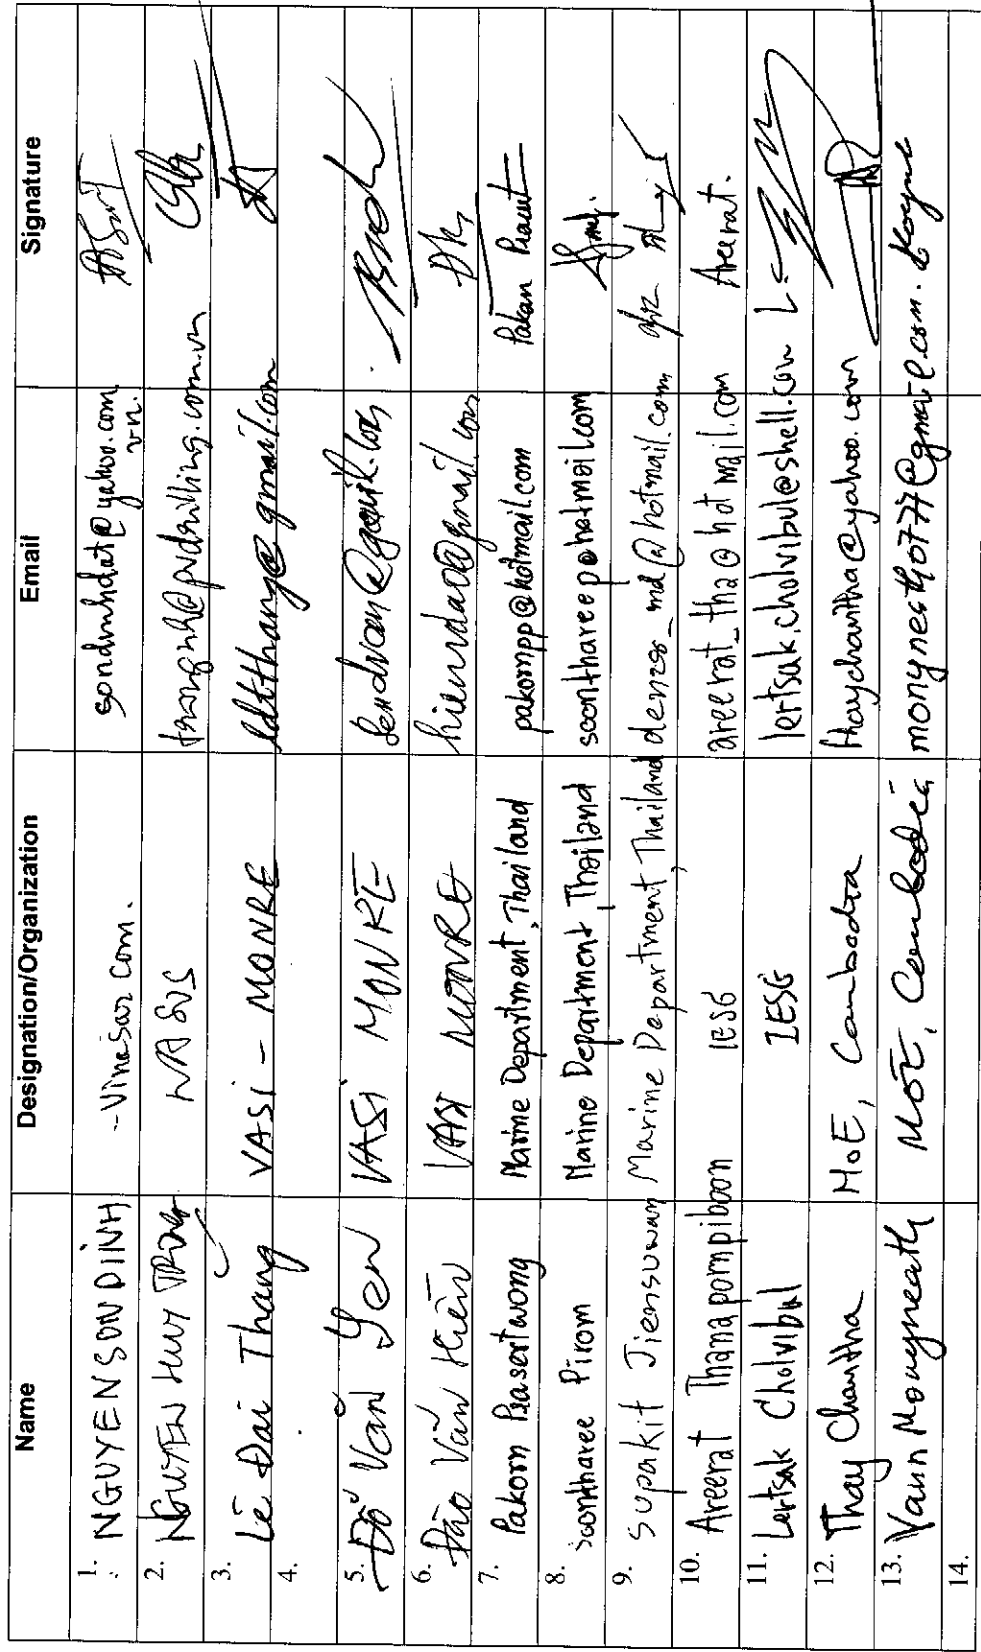 Name Designation/Organization Email Signature
1. NGUYEN SON DINH -Vinasar com. sondinhdat@yahoo.com
vn.
2. NGUYEN HUY
3. Lê Đại Thắng VASI - MONRE ldtthang@gmail.com
4.
5. Đỗ Văn Yen VASI MONRE
6. Đào Văn Hiền VASI MONRE hiendao@gmail.com
7. Pakorn Prasertwong Marine Department, Thailand pakornpp@hotmail.com Pakorn Prasert
8. Soontharee Pirom Marine Department, Thailand soonthareep@hotmail.com
9. Supakit Jiensuwan Marine Department, Thailand
10. Areerat Thanapornpiboon IESG areerat_tha@hotmail.com Areerat.
11. Lertsak Cholvibul IESG lertsak.cholvibul@shell.com
12. Thay Chantha MoE, Cambodia thaychantha@yahoo.com
13. Vann Monyneath MOE, Cambodia
14.